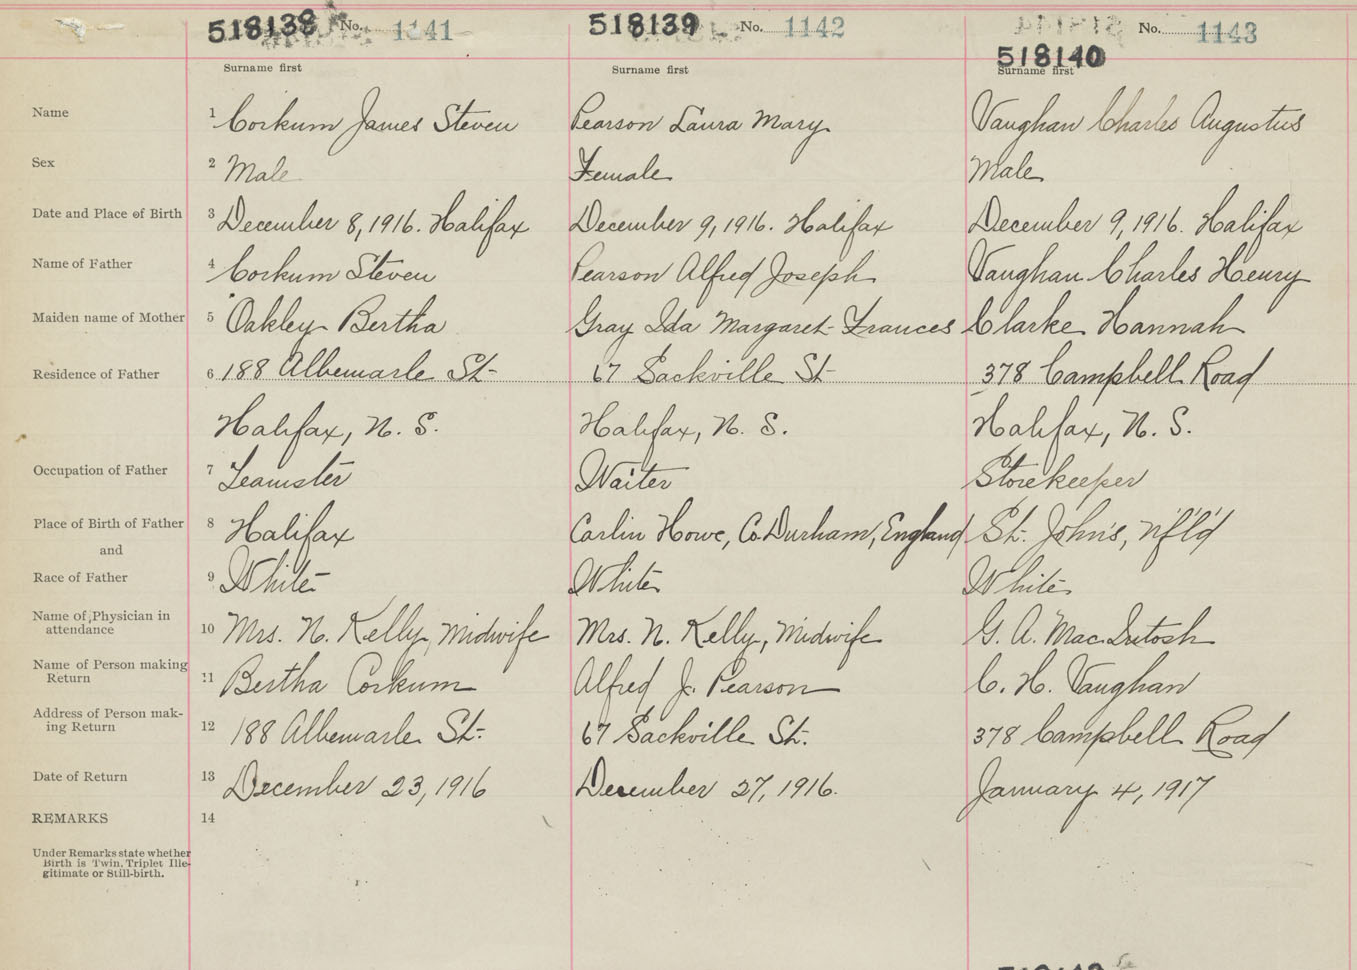 518138 No. 1141 518139 No. 1142 No. 1143
518140
Surname first Surname first Surname first
Name 1 Corkum James Steven Pearson Laura Mary Vaughan Charles Augustus
Sex 2 Male Female Male
Date and Place of Birth 3 December 8, 1916. Halifax December 9, 1916. Halifax December 9, 1916. Halifax
Name of Father 4 Corkum Steven Pearson Alfred Joseph Vaughan Charles Henry
Maiden name of Mother 5 Oakley Bertha Gray Ida Margaret Frances Clarke Hannah
Residence of Father 6 188 Albemarle St. 67 Sackville St. 378 Campbell Road
Halifax, N. S. Halifax, N. S. Halifax, N. S.
Occupation of Father 7 Teamster Waiter Storekeeper
Place of Birth of Father 8 Halifax Carlin Howe, Co. Durham, England St. John's, N'f'l'd
and
Race of Father 9 White White White
Name of Physician in
attendance 10 Mrs. N. Kelly, Midwife Mrs. N. Kelly, Midwife G. A. MacIntosh
Name of Person making
Return 11 Bertha Corkum Alfred J. Pearson C. H. Vaughan
Address of Person mak-
ing Return 12 188 Albemarle St. 67 Sackville St. 378 Campbell Road
Date of Return 13 December 23, 1916 December 27, 1916. January 4, 1917
REMARKS 14
Under Remarks state whether
Birth is Twin, Triplet Ille-
gitimate or Still-birth.